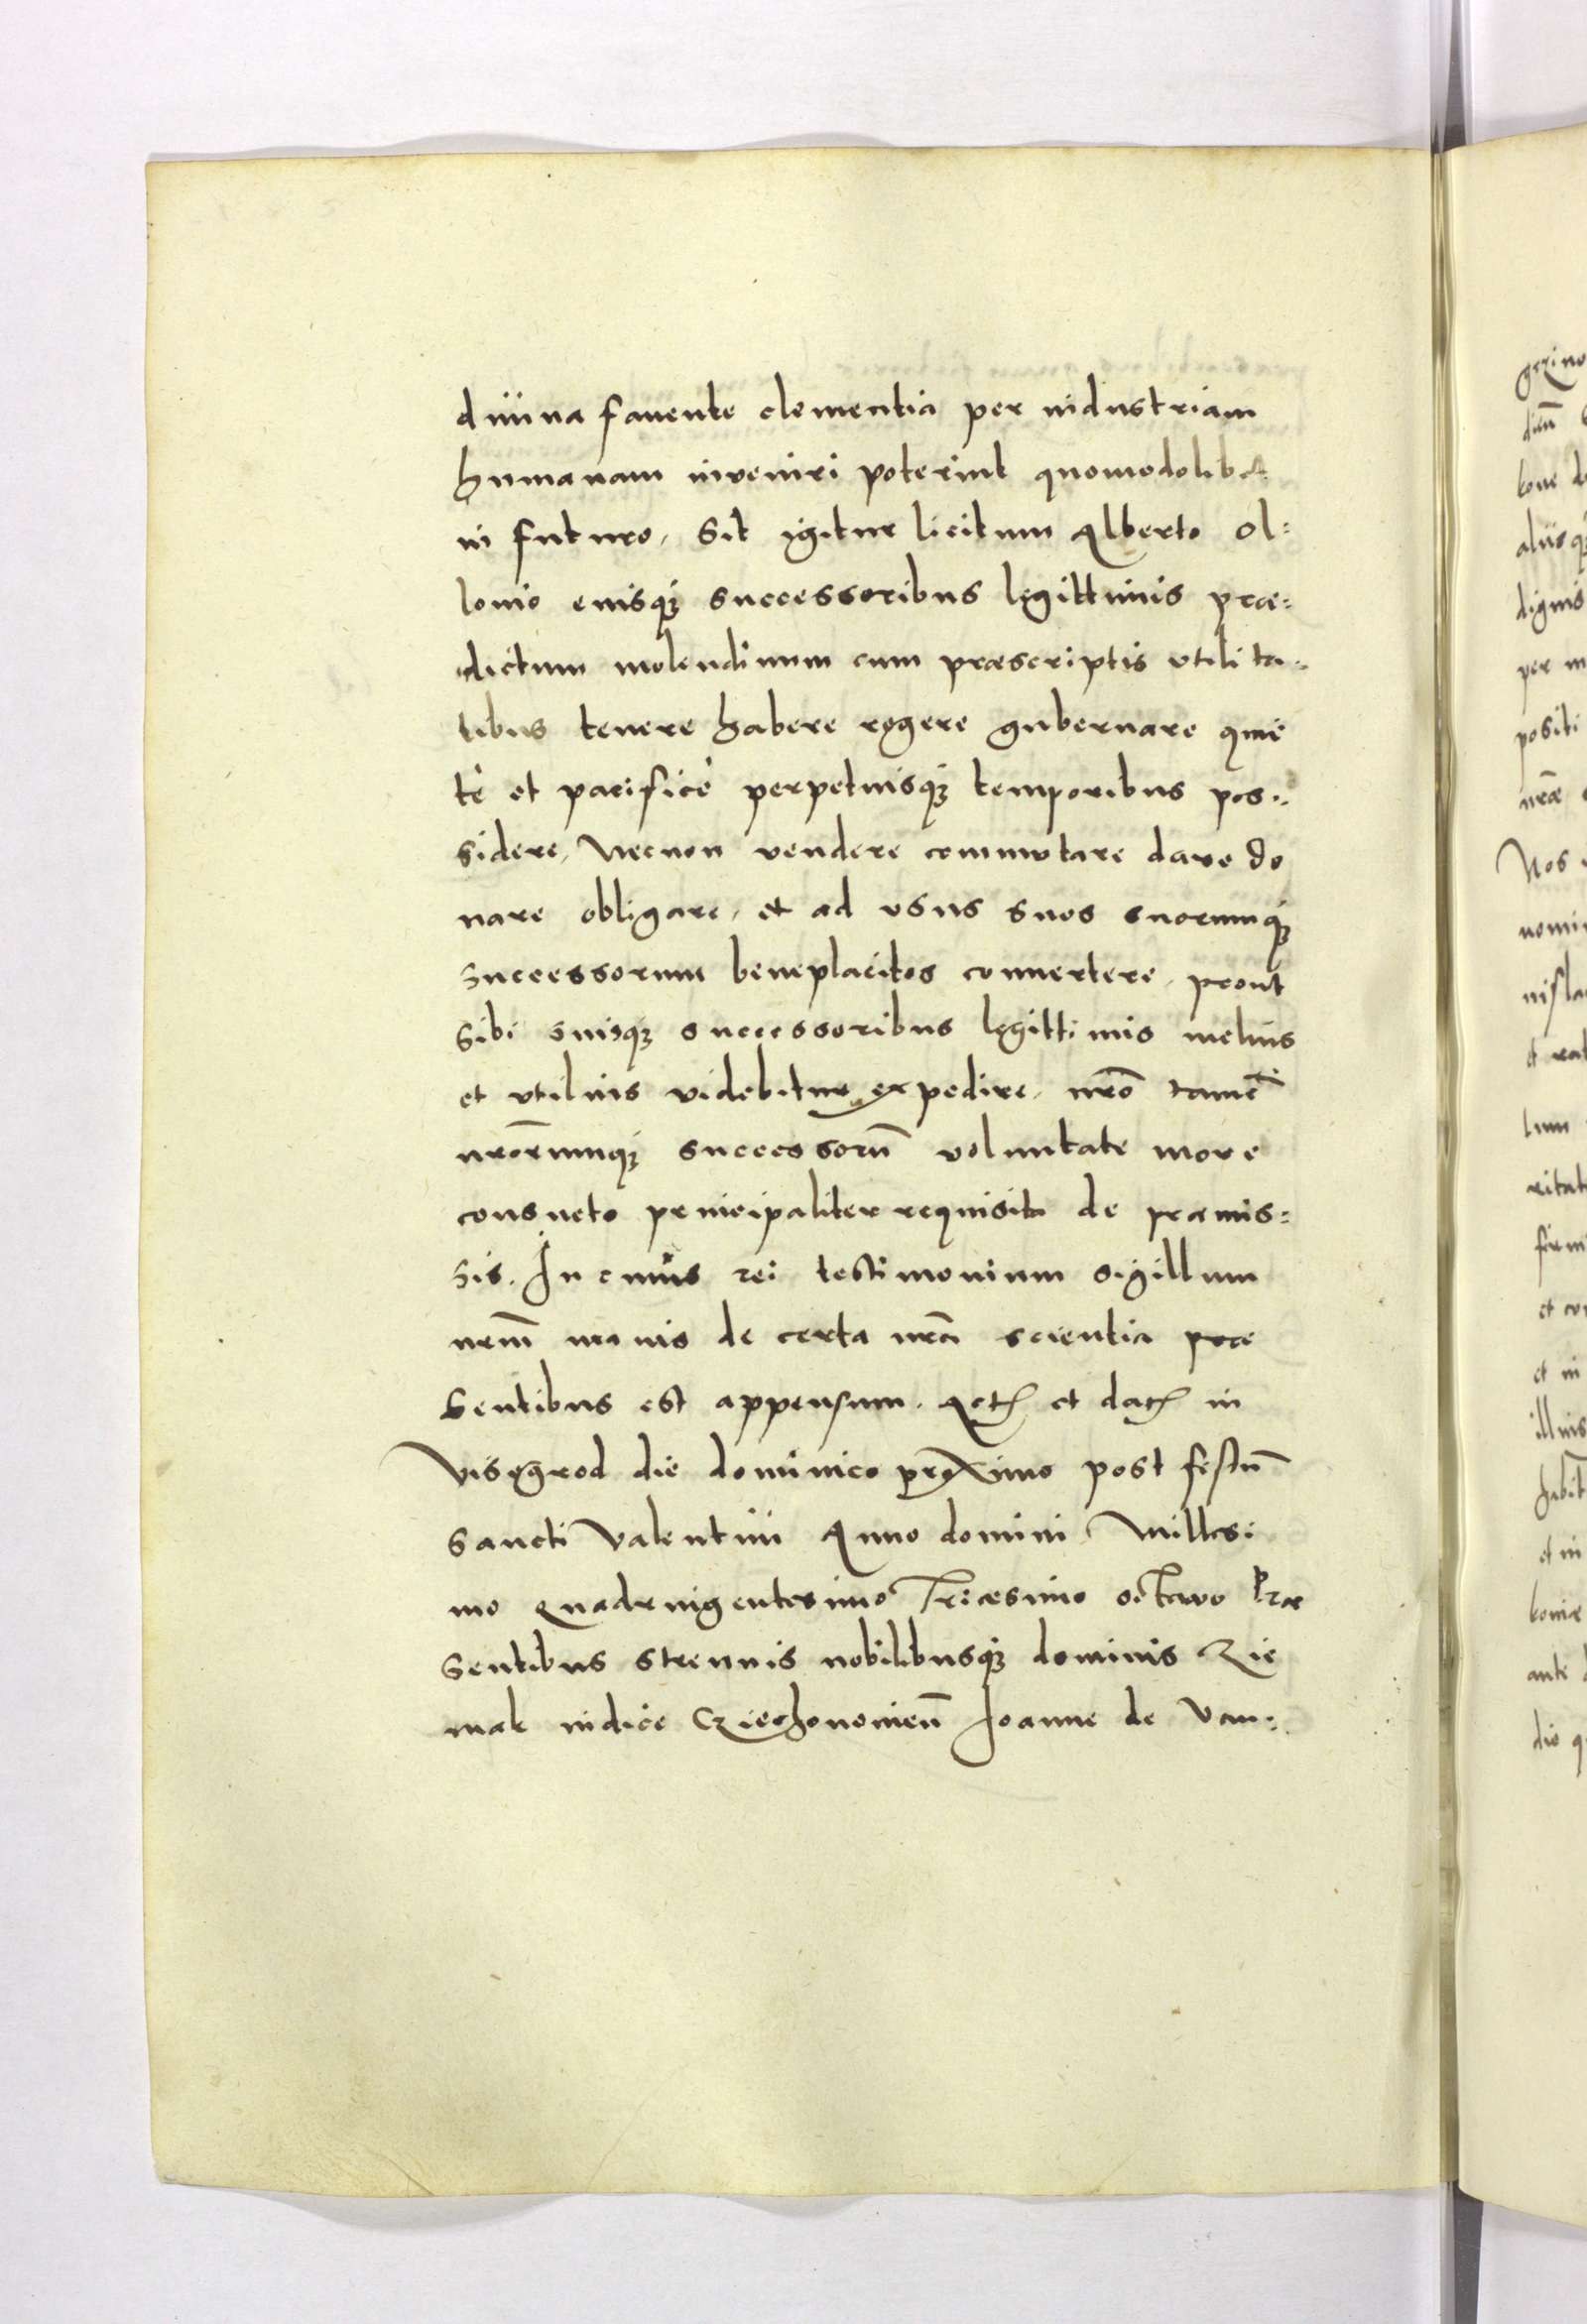 diuina fauente clementia per industriam
humanam inveniri poterint quomodolibet
in futuro, Sit igitur licitum Alberto Ol:
lonio eiusq; successoribus legittimis præ:
dictum molendinum cum præscriptis vtilita:
tibus tenere habere regere gubernare quie
tè et pacificè perpetuisq; temporibus pos:
sidere, Necnon vendere commutare dare do
nare obligare, et ad vsus suos suorumq;
successorum beneplacitos conuertere, prout
Sibi suisq; successoribus legittimis melius
et vtilius videbitur expedire, nr̃o tamẽ
nr̃orumq; successorũ voluntate more
consueto principaliter requisita de præmis:
sis. In cuius rei testimonium sigillum
nr̃m maius de certa nr̃a scientia præ
sentibus est appensum. Act. et dat. in
Visegrod die dominico proximo post festũ
Sancti Valentini Anno domini Millesi
mo Quadringentesimo Tricesimo octavo Præ
Sentibus strenuis nobilibusq; dominis Zie
mak iudice Cziechonovieñ Joanne de Van:
gerino
diẽ
kone
aliisq;
dignis
per
positi
nr̃æ
Nos
nomi
nisla
et rat
lum
ritat
firm
et con
et in
illius
habit
et in
koniæ
ante
die q